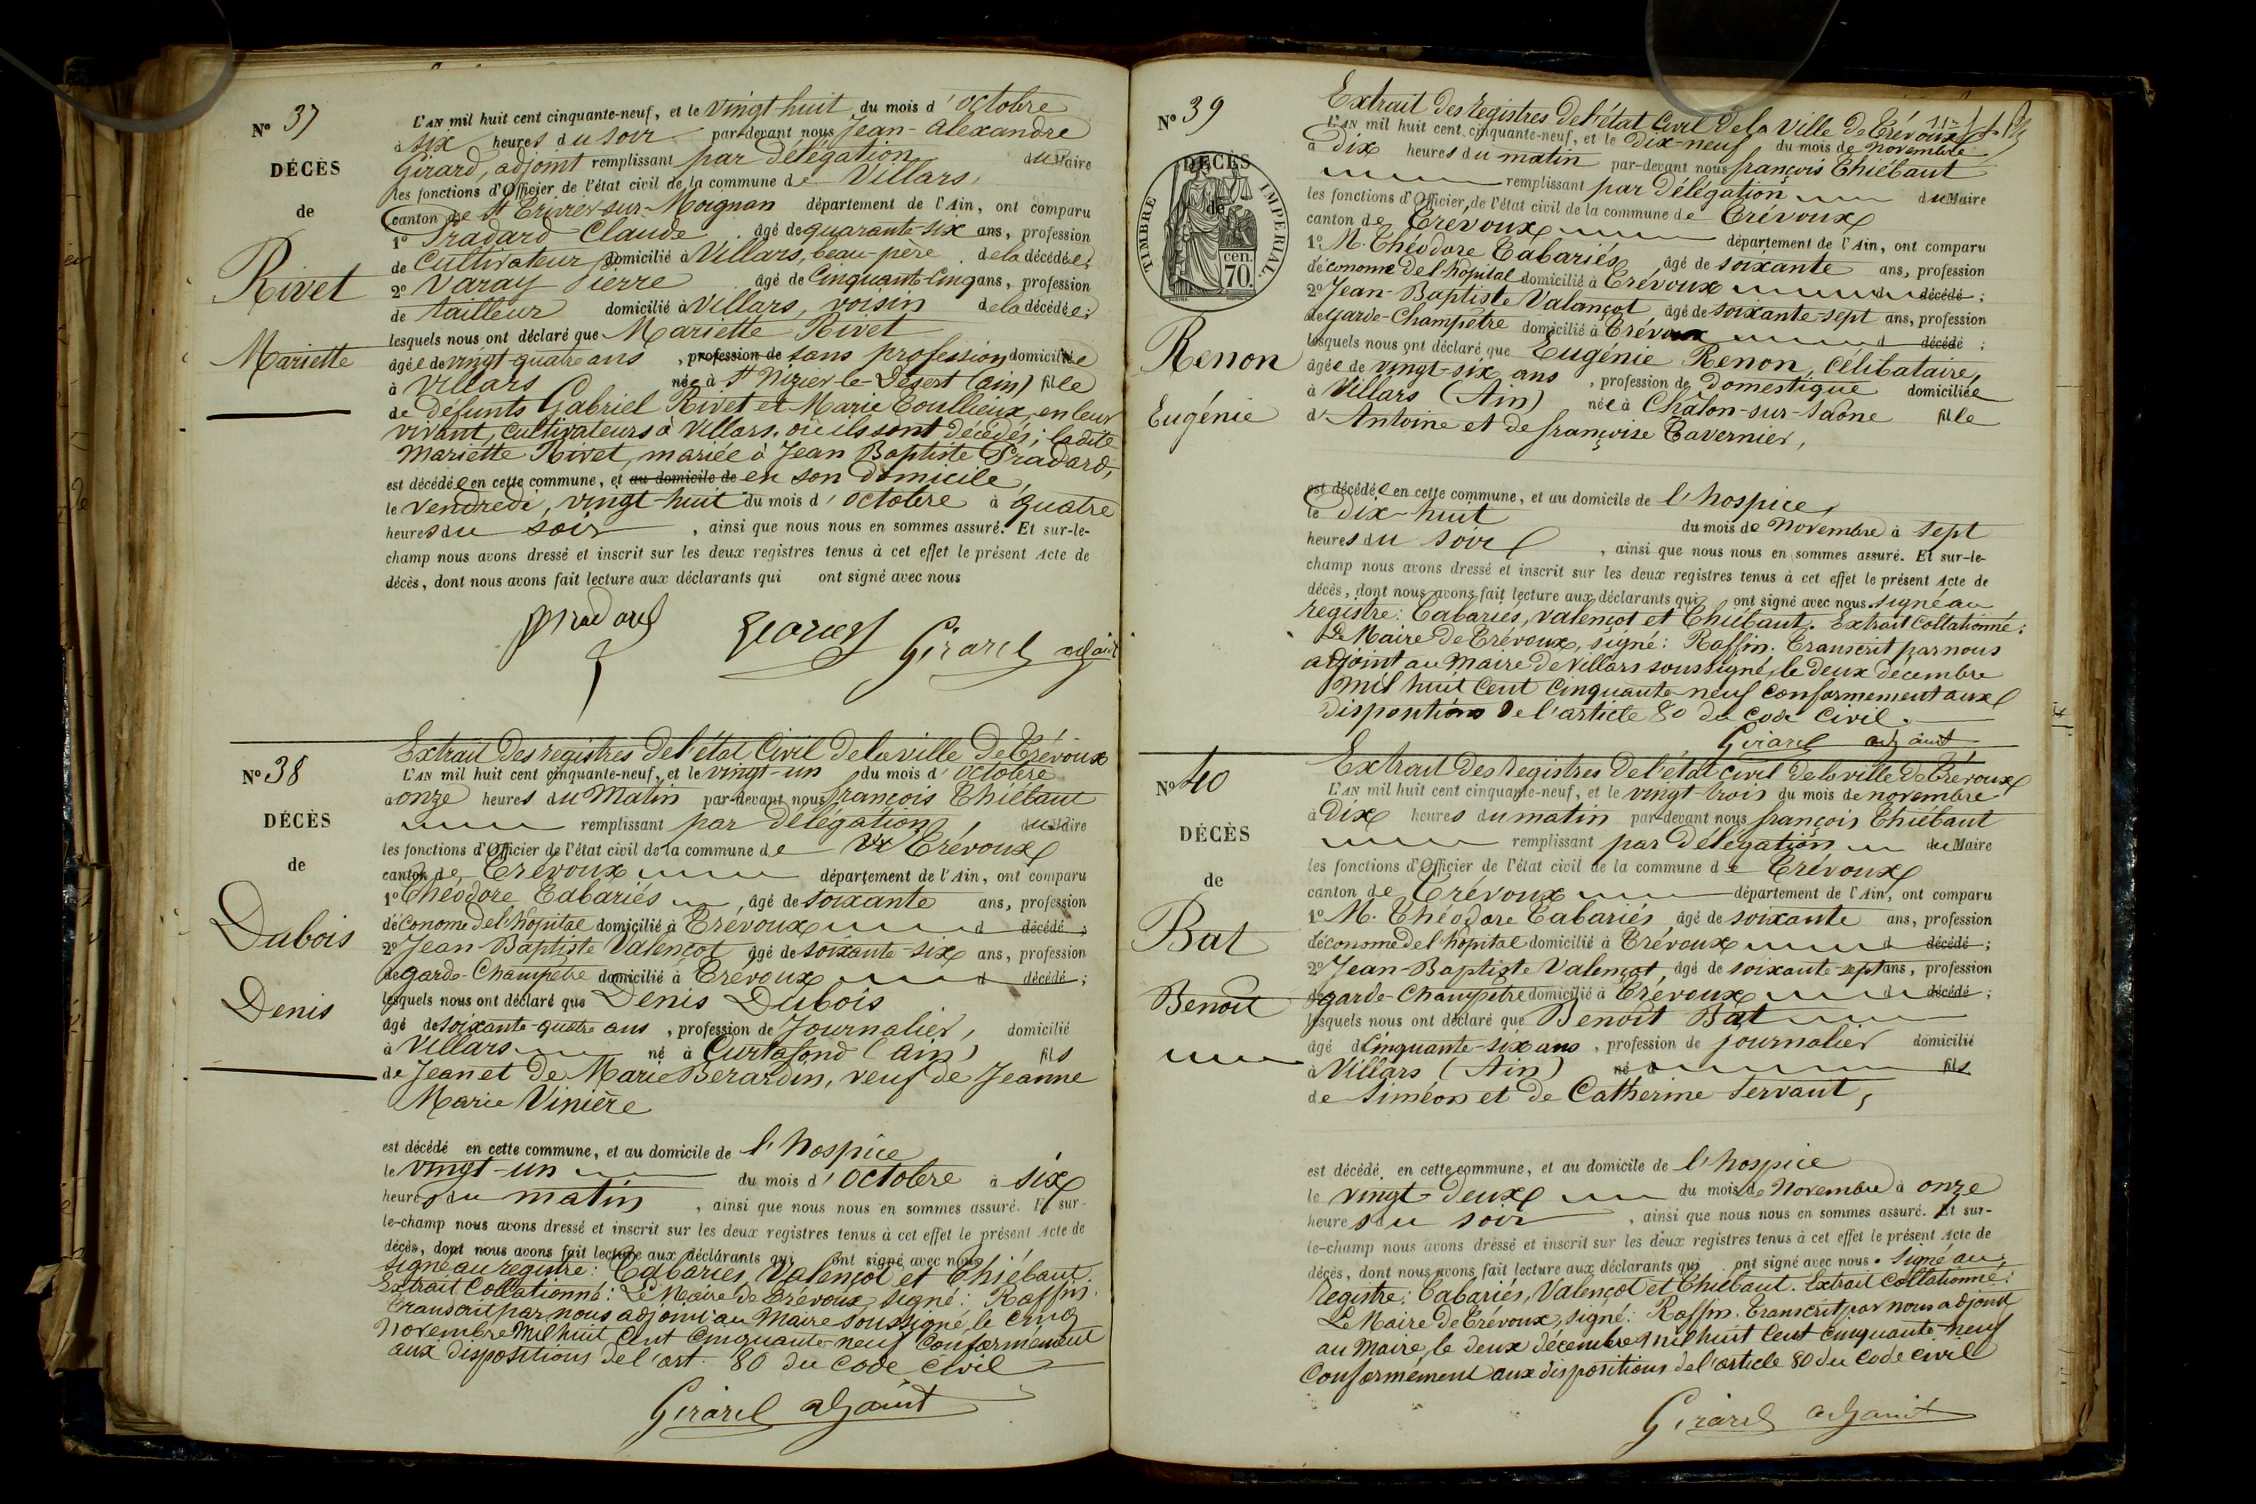 N° 37
DÉCÈS
de
Rivet
Mariette
L'AN mil huit cent cinquante-neuf, et le vingt-huit du mois d'octobre
à six heures du soir par-devant nous Jean-Alexandre
Girard, adjoint remplissant par délégation du Maire
les fonctions d'Officier de l'état civil de la commune de Villars,
canton de St Trivier-sur-Moignan département de l'Ain, ont comparu
1° Pradard Claude âgé de quarante-six ans, profession
de Cultivateur domicilié à Villars, beau-père de la décédée;
2° Varay Pierre âgé de Cinquante-Cinq ans, profession
de tailleur domicilié à Villars, voisin de la décédée;
lesquels nous ont déclaré que Mariette Rivet
âgée de vingt-quatre ans, profession de sans profession domiciliée
à Villars née à St Nizier-le-Désert (ain) fille
de défunts Gabriel Rivet et Marie Toullieux, en leur
vivant, cultivateurs à Villars, où ils sont décédés; ladite
Mariette Rivet, mariée à Jean Baptiste Pradard,
est décédée en cette commune, et au domicile de en son domicile,
le vendredi, vingt-huit du mois d'octobre à quatre
heures du soir, ainsi que nous nous en sommes assuré. Et sur-le-
champ nous avons dressé et inscrit sur les deux registres tenus à cet effet le présent Acte de
décès, dont nous avons fait lecture aux déclarants qui ont signé avec nous
Pradard Girard adjoint
N° 38
DÉCÈS
de
Dubois
Denis
Extrait des registres de l'état Civil de la ville de Trévoux
L'AN mil huit cent cinquante-neuf, et le vingt-un du mois d'octobre
à onze heures du Matin par-devant nous françois Thiébaut
remplissant par délégation, du Maire
les fonctions d'Officier de l'état civil de la commune de Trévoux
canton de Trévoux département de l'Ain, ont comparu
1° Théodore Cabariés, âgé de soixante ans, profession
d'économe de l'hopital domicilié à Trévoux d décédé;
2° Jean-Baptiste Valençot âgé de soixante-six ans, profession
de garde-Champêtre domicilié à Trévoux d décédé;
lesquels nous ont déclaré que Denis Dubois
âgé de soixante-quatre ans, profession de Journalier, domicilié
à Villars né à Curtafond (ain) fils
de Jean et de Marie Berardin, veuf de Jeanne
Marie Vinière
est décédé en cette commune, et au domicile de l'hospice
le vingt-un du mois d'octobre à six
heures du matin, ainsi que nous nous en sommes assuré. Et sur-
le-champ nous avons dressé et inscrit sur les deux registres tenus à cet effet le présent Acte de
décès, dont nous avons fait lecture aux déclarants qui ont signé avec nous
signé au registre: Cabariés, Valençot et Thiébaut.
Extrait Collationné: Le Maire de Trévoux, signé: Raffin.
Transcrit par nous adjoint au Maire soussigné, le cinq
Novembre Mil huit Cent Cinquante-neuf Conformément
aux dispositions de l'art. 80 du Code civil
Girard adjoint
N° 39
DÉCÈS
de
TIMBRE IMPÉRIAL
70 cen.
Renon
Eugénie
Extrait des Registres de l'état Civil de la Ville de Trévoux
L'AN mil huit cent cinquante-neuf, et le Dix-neuf du mois de Novembre
à Dix heures du matin par-devant nous françois Thiébaut
remplissant par Délégation du Maire
les fonctions d'Officier, de l'état civil de la commune de Trévoux
canton de Trévoux département de l'Ain, ont comparu
1° M. Théodore Cabariés âgé de soixante ans, profession
d'économe de l'hopital domicilié à Trévoux d décédé;
2° Jean-Baptiste Valançot âgé de soixante-sept ans, profession
de garde-Champêtre domicilié à Trévoux d décédé;
lesquels nous ont déclaré que Eugénie Renon, célibataire,
âgée de vingt-six ans, profession de domestique domiciliée
à Villars (Ain) née à Châlon-sur-Saône fille
d'Antoine et de françoise Tavernier,
est décédée en cette commune, et au domicile de l'hospice,
le dix-huit du mois de Novembre à sept
heures du soir, ainsi que nous nous en sommes assuré. Et sur-le-
champ nous avons dressé et inscrit sur les deux registres tenus à cet effet le présent Acte de
décès, dont nous avons fait lecture aux déclarants qui ont signé avec nous. signé au
registre: Cabariés, Valençot et Thiébaut. Extrait Collationné:
Le Maire de Trévoux, signé: Raffin. Transcrit par nous
adjoint au Maire de Villars soussigné, le deux décembre
mil huit cent cinquante-neuf conformement aux
dispositions de l'article 80 du code civil.
Girard adjoint
N° 40
DÉCÈS
de
Bat
Benoît
Extrait des Registres de l'état civil de la ville de Trévoux
L'AN mil huit cent cinquante-neuf, et le vingt-trois du mois de novembre
à Dix heures du matin par-devant nous françois Thiébaut
remplissant par délégation du Maire
les fonctions d'Officier de l'état civil de la commune de Trévoux
canton de Trévoux département de l'Ain, ont comparu
1° M. Théodore Cabariés âgé de soixante ans, profession
d'économe de l'hopital domicilié à Trévoux d décédé;
2° Jean-Baptiste Valençot, âgé de soixante-sept ans, profession
de garde-Champêtre domicilié à Trévoux d décédé;
lesquels nous ont déclaré que Benoît Bat
âgé de Cinquante-six ans, profession de journalier domicilié
à Villars (Ain) né à fils
de Siméon et de Catherine Servant,
est décédé en cette commune, et au domicile de l'hospice
le vingt-deux du mois de Novembre à onze
heures du soir, ainsi que nous nous en sommes assuré. Et sur-
le-champ nous avons dressé et inscrit sur les deux registres tenus à cet effet le présent Acte de
décès, dont nous avons fait lecture aux déclarants qui ont signé avec nous. Signé au
Registre: Cabariés, Valençot et Thiébaut. Extrait Collationné:
Le Maire de Trévoux, signé: Raffin. Transcrit par nous adjoint
au Maire, le deux décembre mil huit Cent cinquante-neuf
Conformément aux dispositions de l'article 80 du Code Civil
Girard adjoint